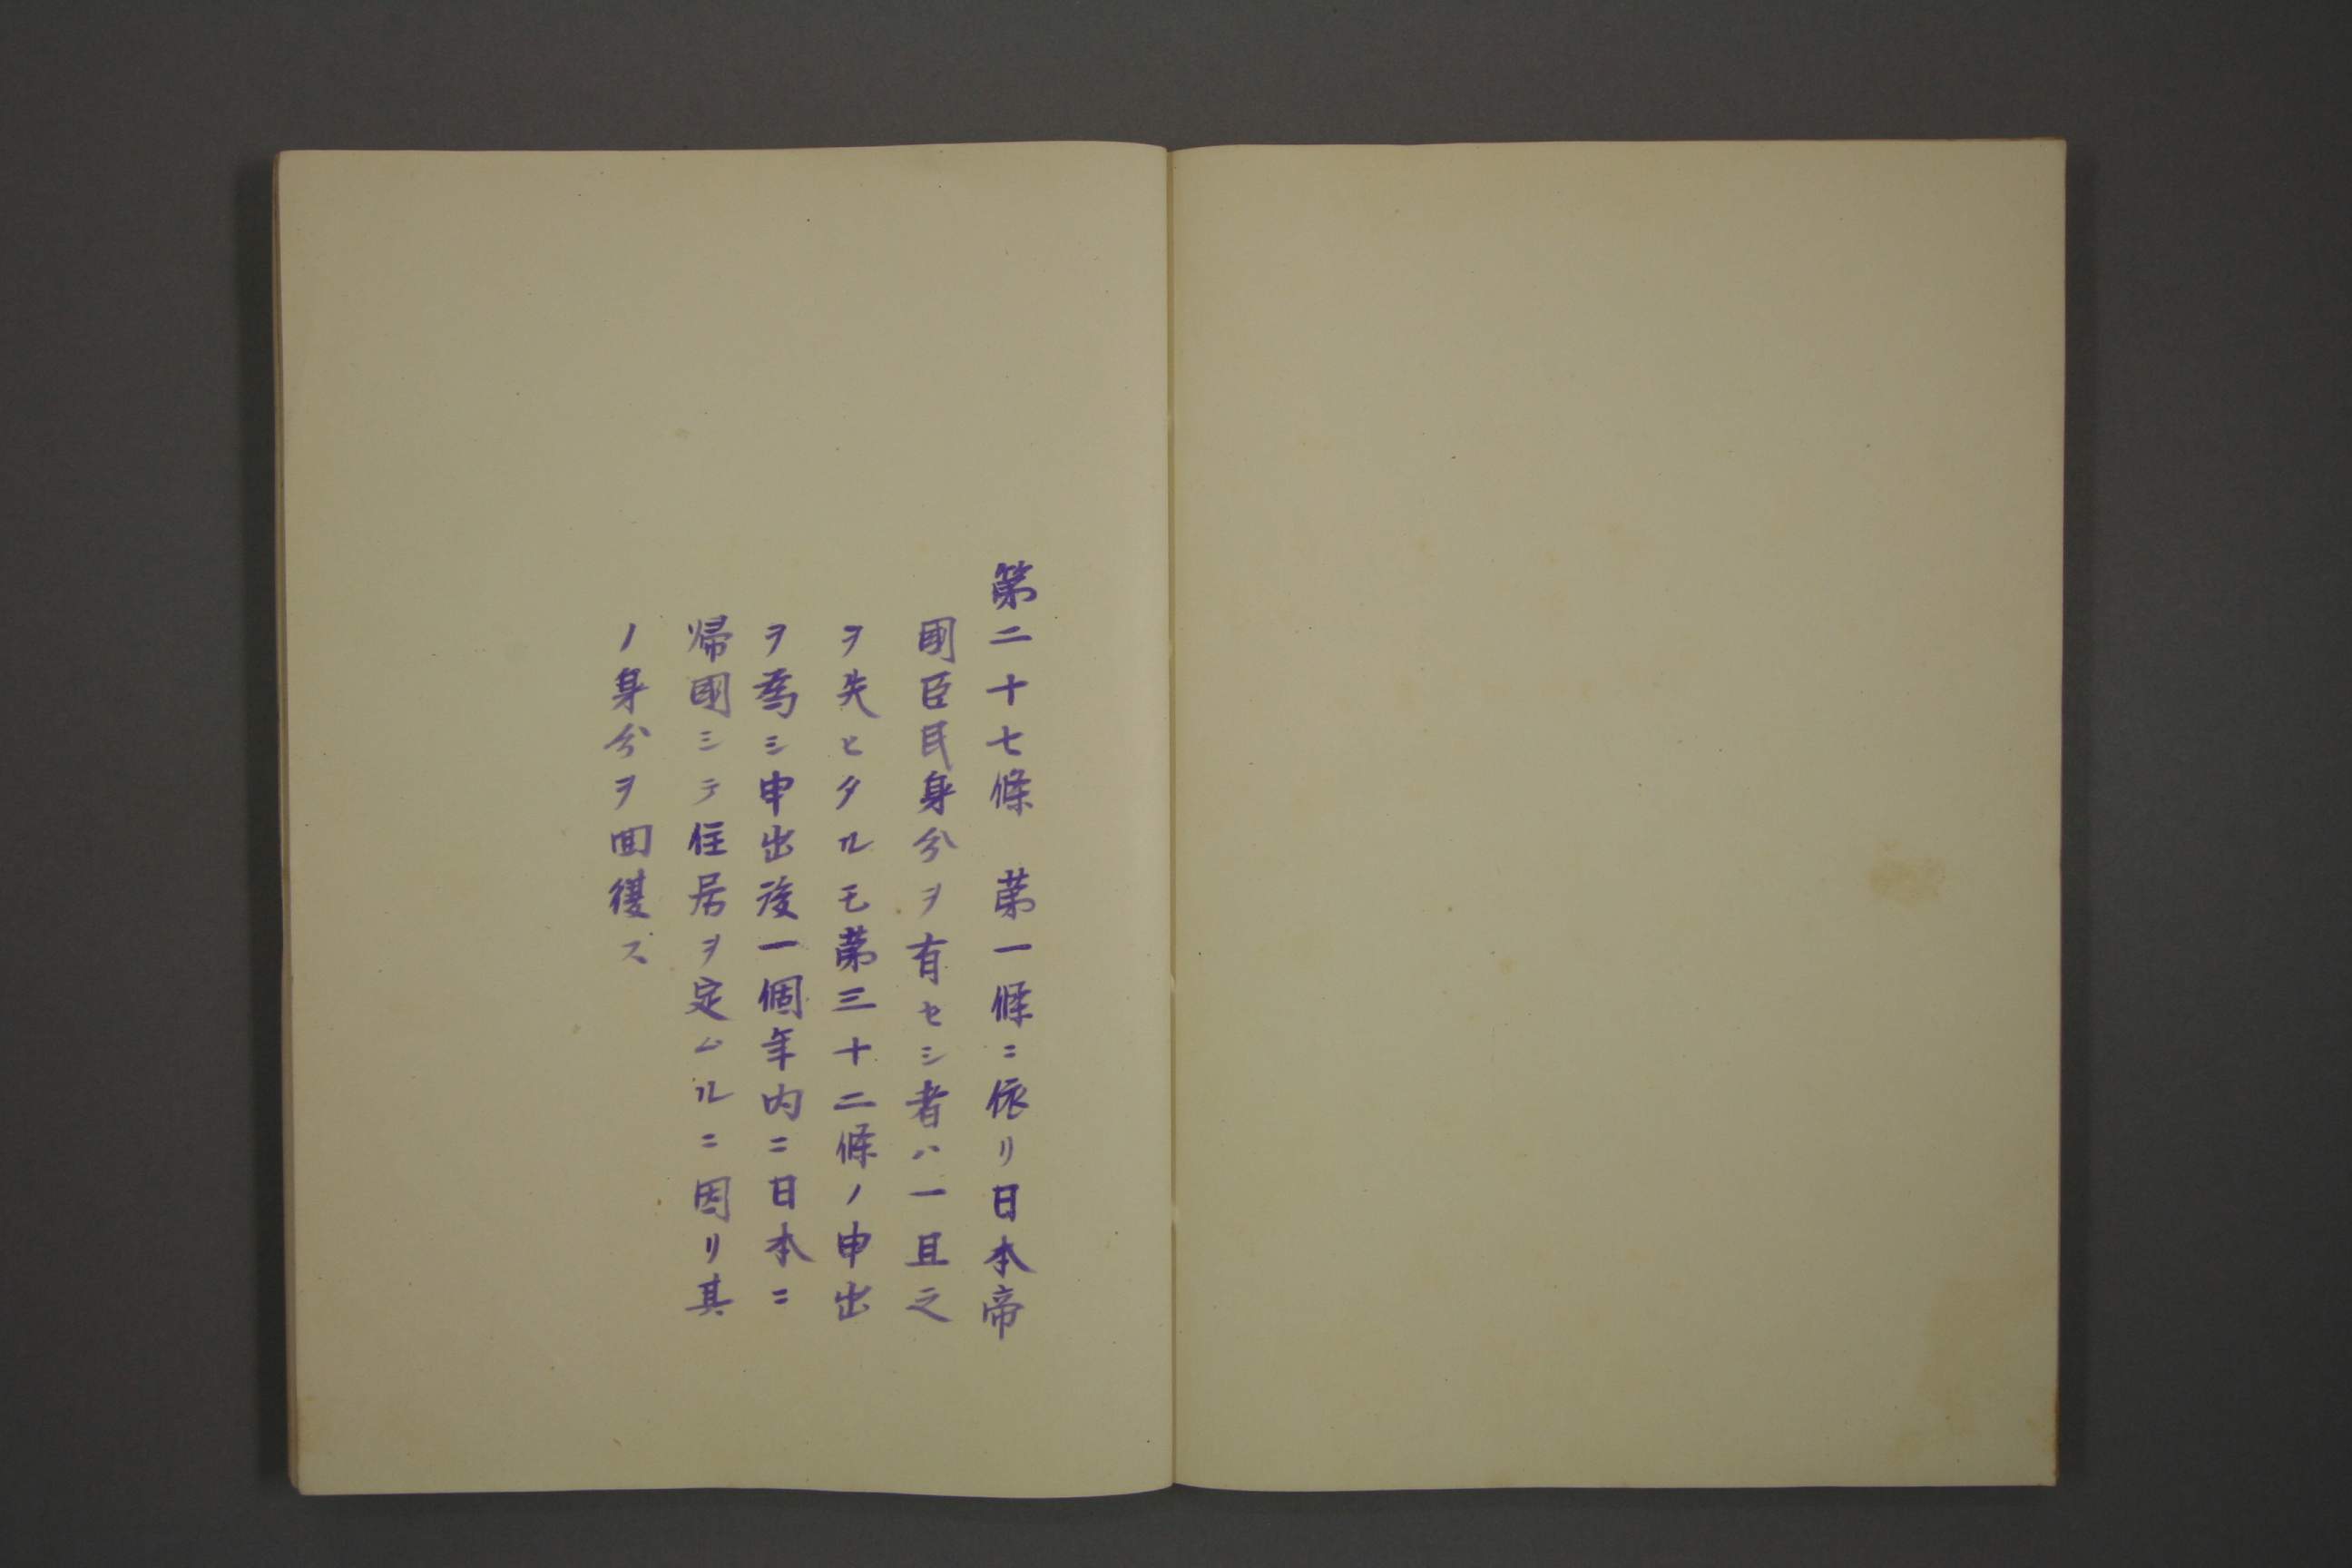 第二十七條　第一條ニ依リ日本帝
國臣民身分ヲ有セシ者ハ一旦之
ヲ失ヒタルモ第三十二條ノ申出
ヲ爲シ申出後一個年内ニ日本ニ
帰國シテ住居ヲ定ムルニ因リ其
ノ身分ヲ回復ス